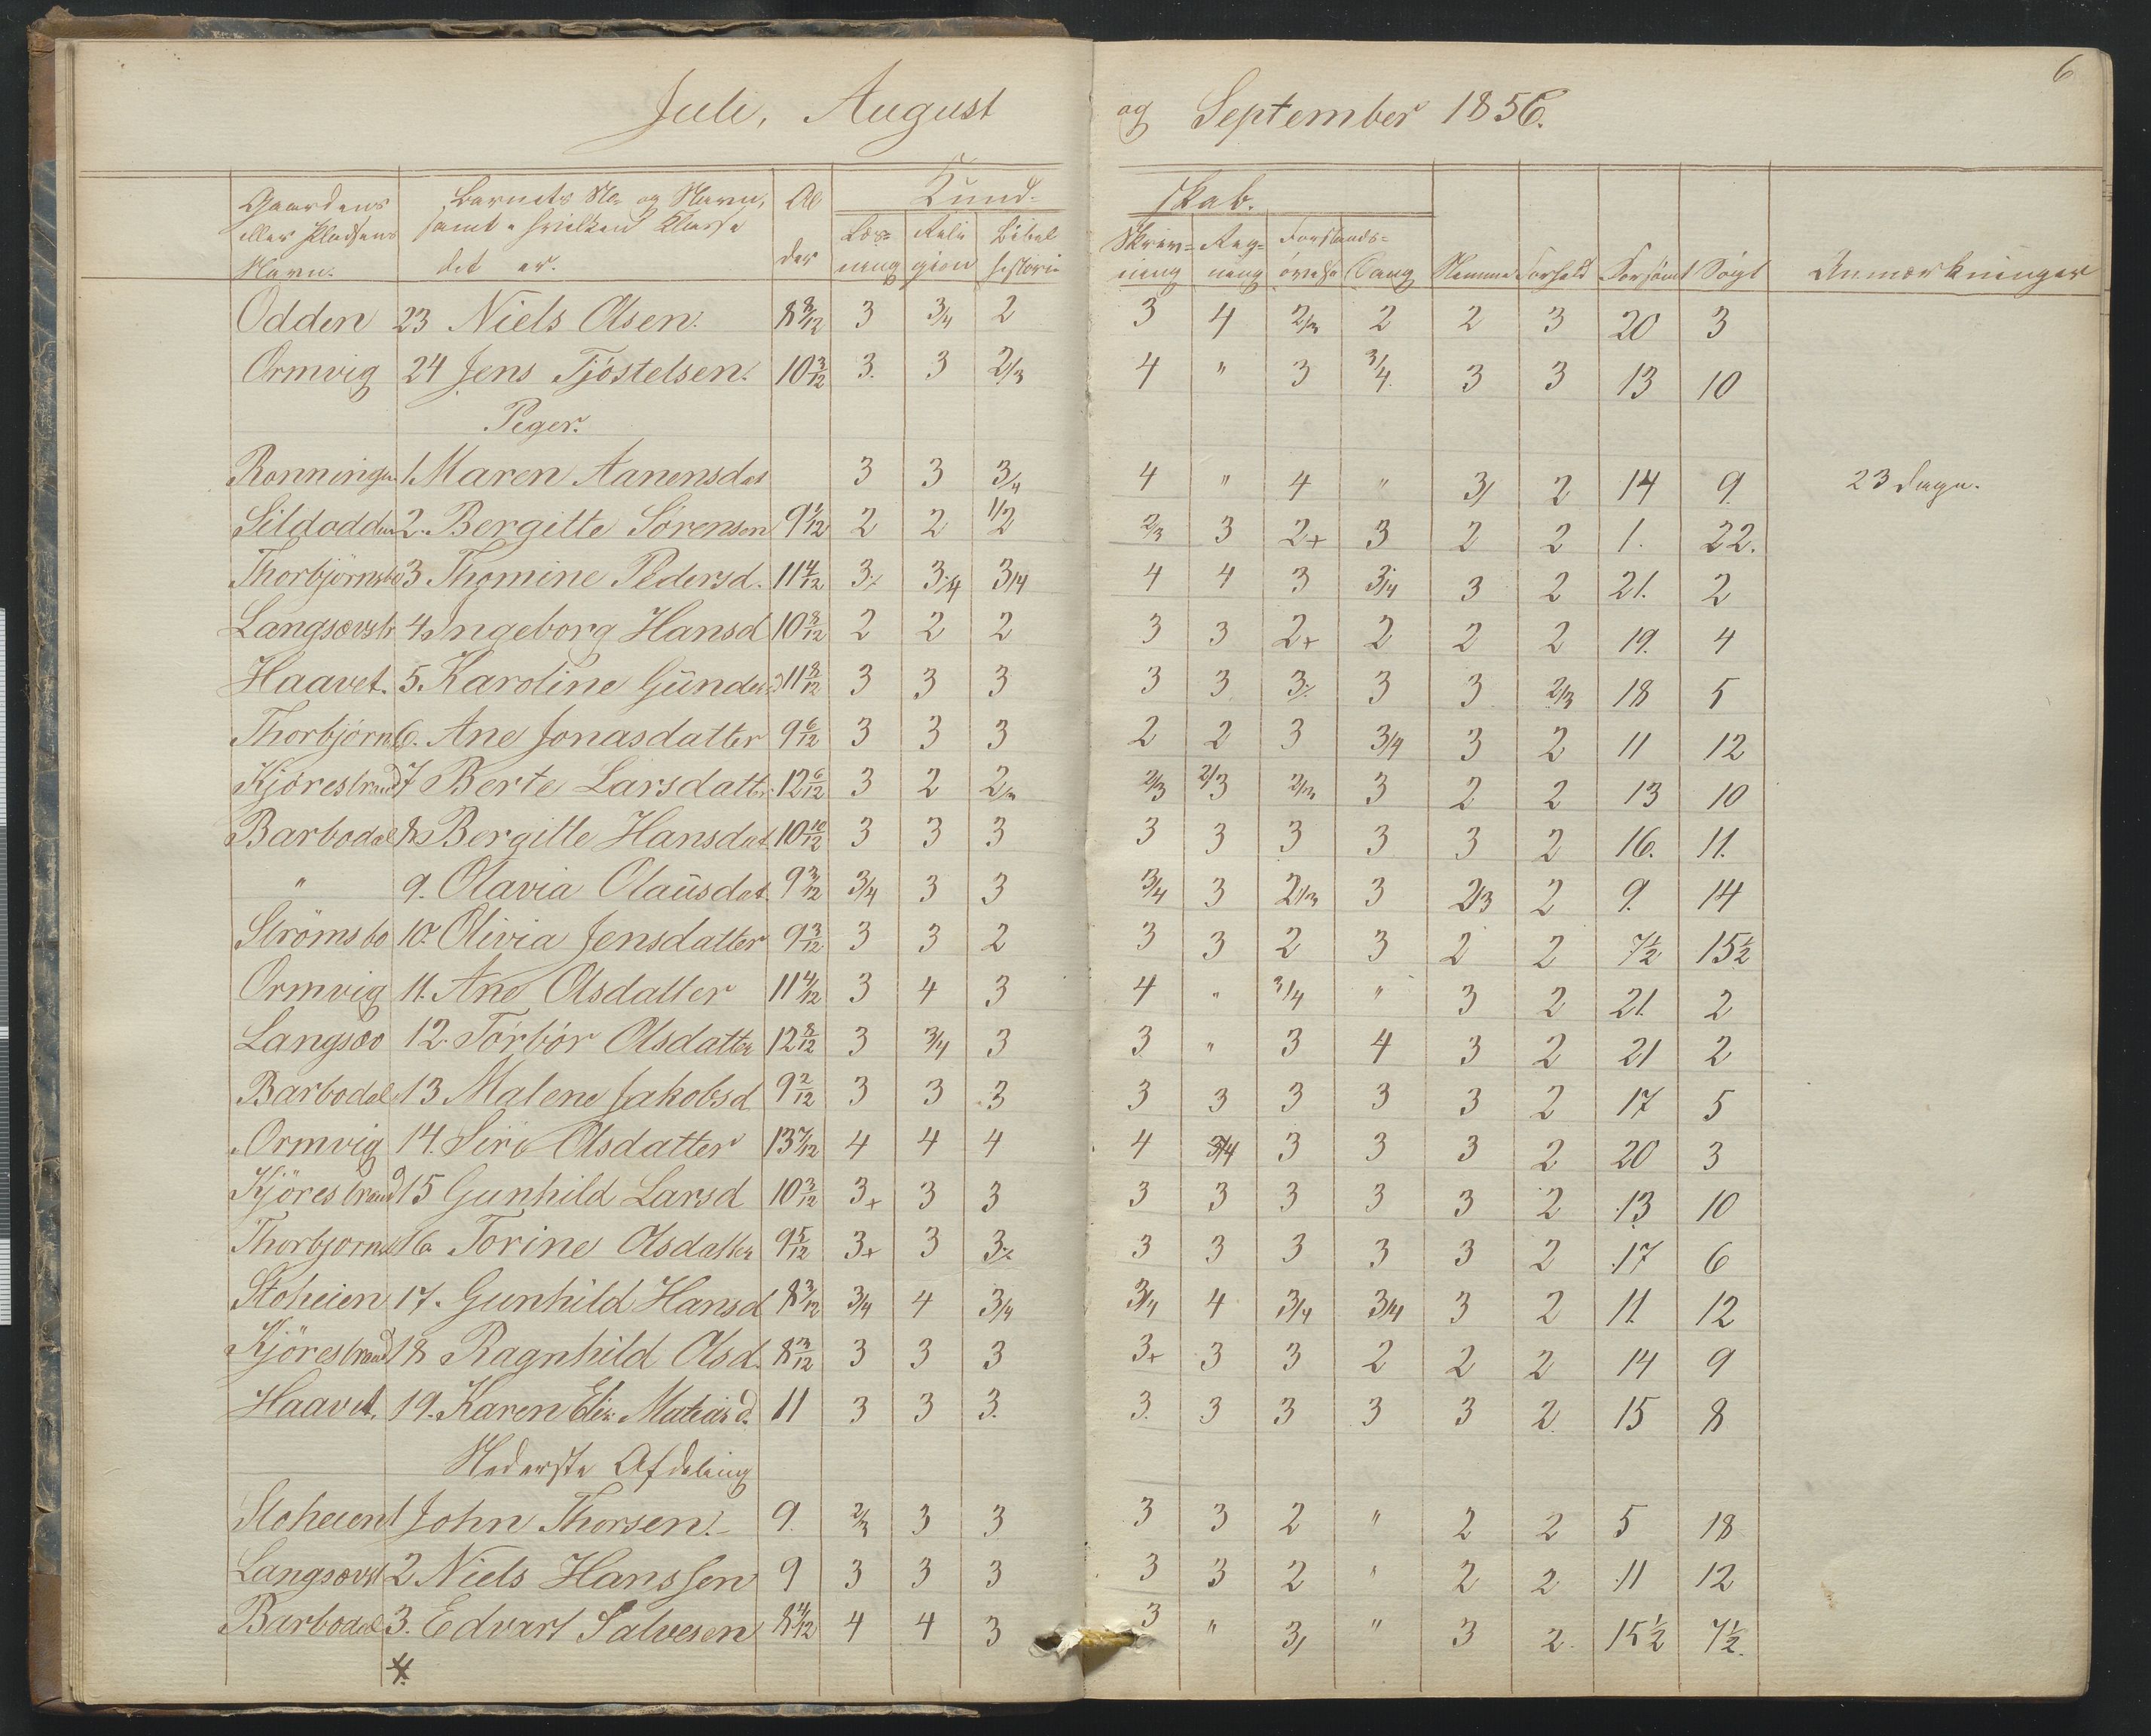 6
Juli, August og September 1856.
Gaardens eller Pladsens Navn. Barnets No og Navn, samt i hvilken Klasse det er. Al der Kund- skab. Læs- ning Reli gion Bibel historie Skriv- ning Reg- ning Forstands- øvelse Sang Nemme Forhold Forsömt Sögt Anmærkninger
Odden 23 Niels Olsen. 8 8/12 3 3/4 2 3 4 2/3 2 2 3 20 3
Ormvig 24 Jens Tjöstelsen. 10 3/12 3. 3 2/3 4 " 3 3/4. 3 3 13 10
Piger.
Ronningen 1. Maren Aanensdat 3 3 3/4 4 " 4 " 3/ 2 14 9. 23 dage.
Sildodden 2. Bergitte Sörensen 9 1/12 2 2 1/2 2/3 3 2+ 3 2 2 1. 22.
Thorbjörnsbo 3 Thomine Pedersd. 11 4/12 3⁒ 3/4 3/4 4 4 3 3/4 3 2 21. 2
Langsævstr 4. Ingeborg Hansd 10 8/12 2 2 2 3 3 2+ 2 2 2 19. 4
Haavet. 5. Karoline Gunders 11 8/12 3 3 3 3 3 3⁒ 3 3 2/3 18 5
Thorbjörns 6. Ane Jonasdatter 9 6/12 3 3 3 2 2 3 3/4 3 2 11 12
Kjörestrand 7 Berte Larsdatter 12 6/12 3 2 2/3 2/3 2/3 2/3 3 2 2 13 10
Barbodal 8. Bergitte Hansdat 10 10/12 3 3 3 3 3 3 3 3 2 16. 11.
" 9. Olavia Olausdat. 9 3/12 3/4 3 3 3/4 3 2/3 3 2/3 2 9. 14
Strömsbo 10. Olivia Jensdatter 9 3/12 3 3 2 3 3 2 3 2 2 7½ 15½
Ormvig 11. Ane Olsdatter 11 4/12 3 4 3 4 " 3/4 " 3 2 21. 2
Langsæv 12. Törbör Olsdatter 12 8/12 3 3/4 3 3 " 3 4 3 2 21 2
Barbodal 13 Malene Jakobsd 9 2/12 3 3 3 3 3 3 3 3 2 17 5
Ormvig 14. Siri Olsdatter 13 7/12 4 4 4 4 3/4 3 3 3 2 20 3
Kjörestrand 15 Gunhild Larsd 10 3/12 3+ 3 3 3 3 3 3 3 2 13 10
Thorbjorns 16. Torine Olsdatter 9 5/12 3+ 3 3⁒ 3 3 3 3 3 2 17 6
Stoheien 17. Gunhild Hansd 8 3/12 3/4 4 3/4 3/4 4 3/4 3/4 3 2 11. 12
Kjörestrand 18 Ragnhild Olsd. 8 3/12 3 3 3 3+ 3 3 2 2 2 14 9
Haavet. 19. Karen Eliz. Matiasd. 11 3 3 3. 3. 3 3 3 3 2 15 8
Nederste Afdeling
Stoheien 1 John Thorsen. 9. 2/3 3 3 3 3 2 " 2 2 5 18
Langsævst 2 Niels Hanssen 9 3 3 3 3 3 2 " 2 2 11 12
Barbodal 3. Edvart Salvesen 8 4/12 4 4 3 3 " 3/ " 3 2. 15½ 7½.
4.